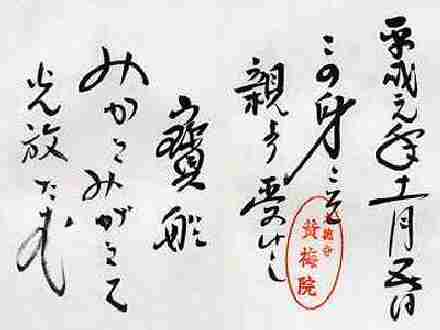 平成元年十一月五日
この身こそ
親より受けし
寶船
みかきみがきて
光放たむ
黄梅院